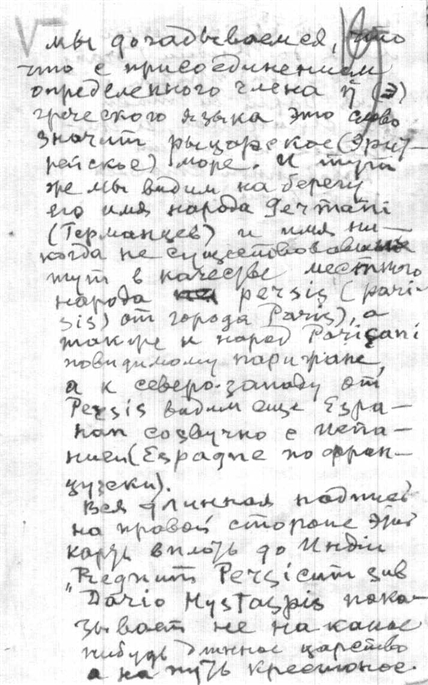 мы догадываемся, что
что с присоединением
определенного члена ἡ (э)
греческого языка это слово
значит рыцарское (Эрит-
рейское) море. И тут
же мы видим на берегу
его имя народа Germani
(Германцев) и имя ни-
когда не существовавшего
тут в качестве местного
народа persis (pari-
sis) от города Paris), а
также и народ Pariçani
повидимому парижане,
а к северо-западу от
Persis видим еще Espa-
han созвучно с Испа-
нией (Espagne по фран-
цузски).
Вся длинная надпись
на правой стороне этой
карты вплоть до Индии
„Regnum Persicum sub
Dario Hystaspis пока-
зывает не на какое
нибудь длинное царство
а на путь крестоносc